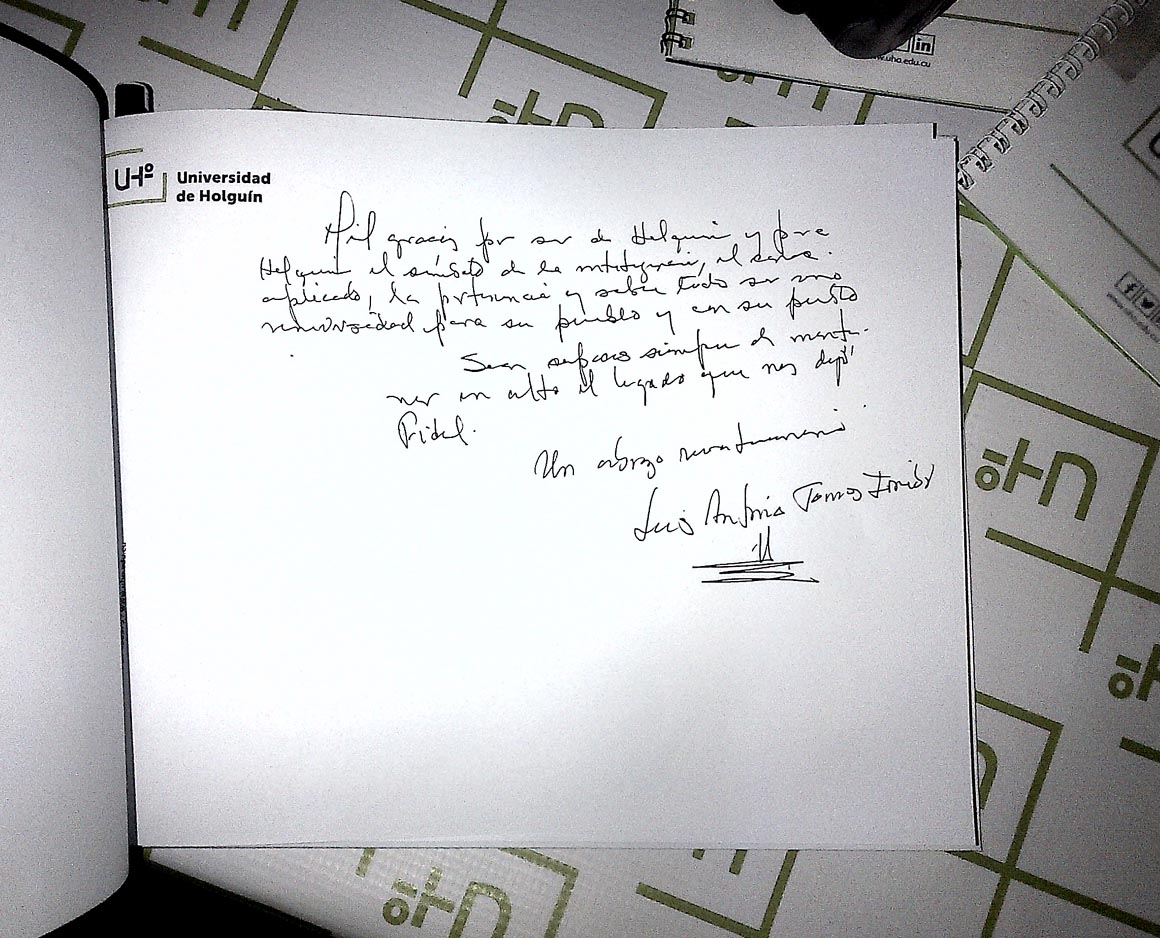 in
www.uho.edu.cu
UHº
Universidad
de Holguín
Mil gracias por ser de Holguín y para
Holguín el símbolo de la inteligencia, el saber
aplicado, la pertinencia y sobre todo ser una
universidad para su pueblo y con su pueblo
Sean capaces siempre de mante-
ner en alto el legado que nos dejó
Fidel.
Un abrazo revolucionario
Luis Antonio Torres Iríbar